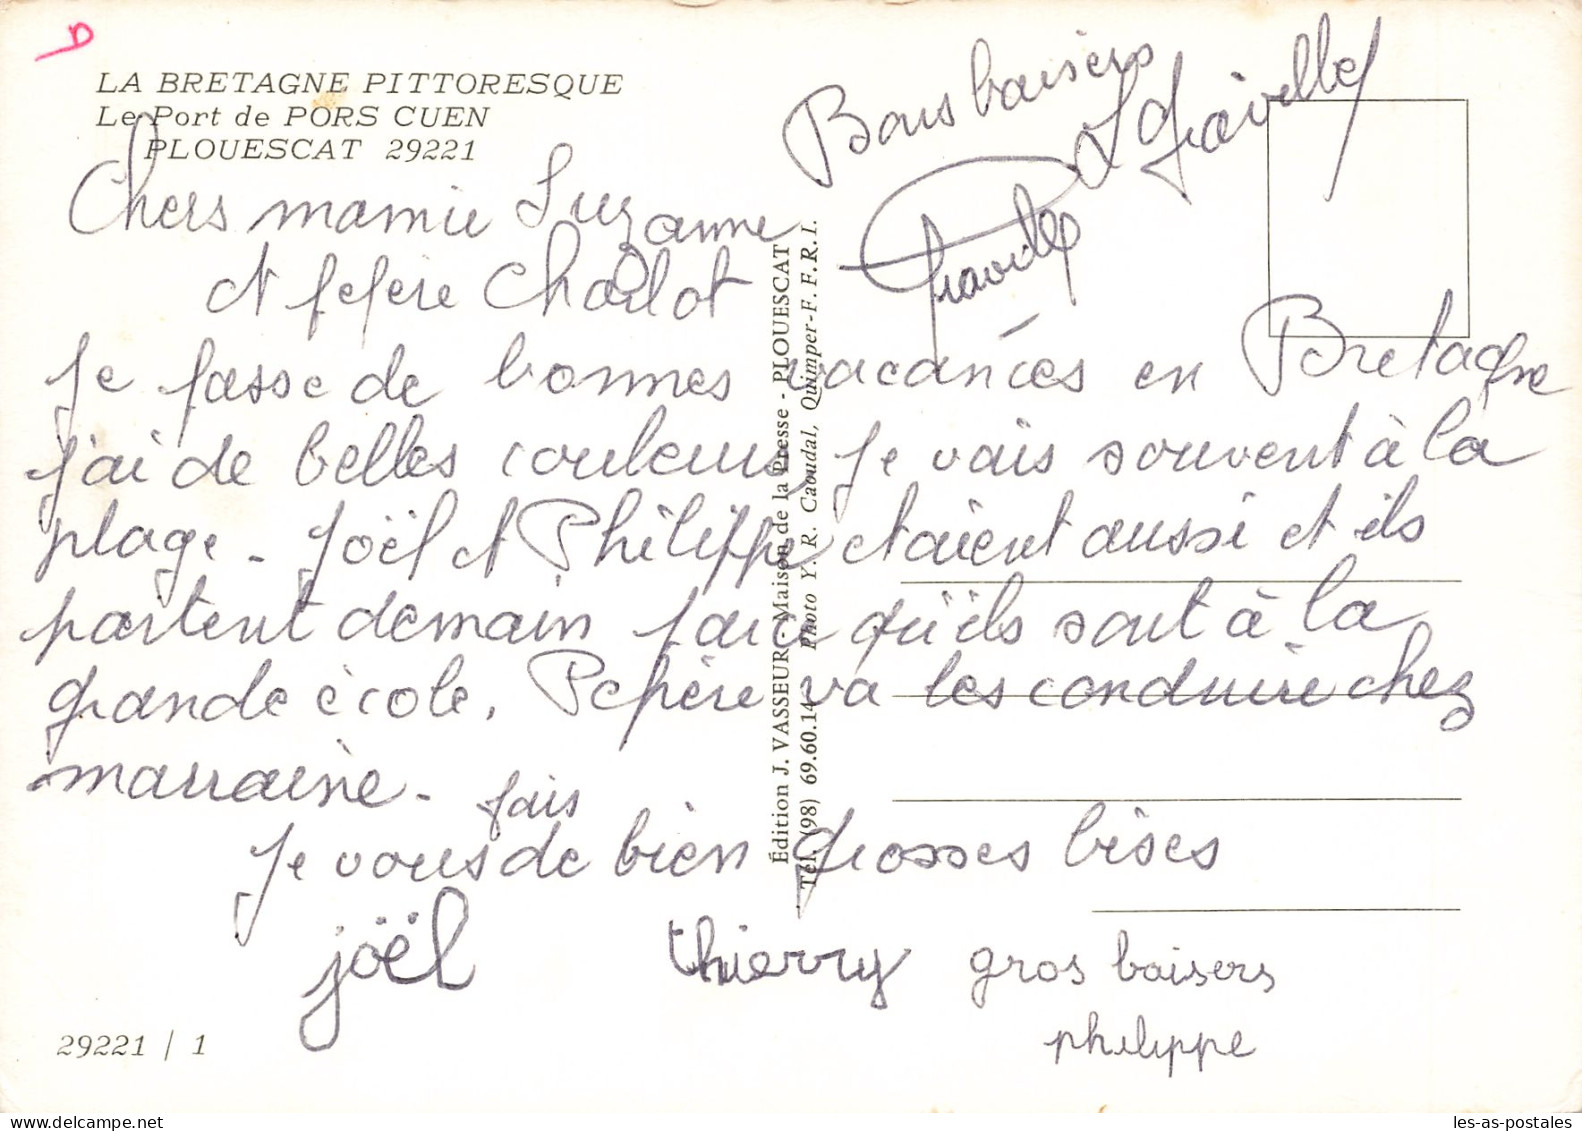 LA BRETAGNE PITTORESQUE
Le Port de PORS CUEN
PLOUESCAT 29221
Bons baisers
Chers mamie Suzanne
et pepere Charlot
Je passe de bonnes vacances en Bretagne
j'ai de belles couleurs, je vais souvent à la
plage - Joël et Philippe etaient aussi et ils
partent demain parce qu'ils sont à la
grande école. Pepère va les conduire chez
marraine -
fais
Je vous de bien grosses bises
joël thierry gros baisers
philippe
29221 / 1
Édition J. VASSEUR - Maison de la Presse - PLOUESCAT
Tél. (98) 69.60.14 Photo Y. R. Caoudal, Quimper-F. F.R.I.
delcampe.net
les-as-postales